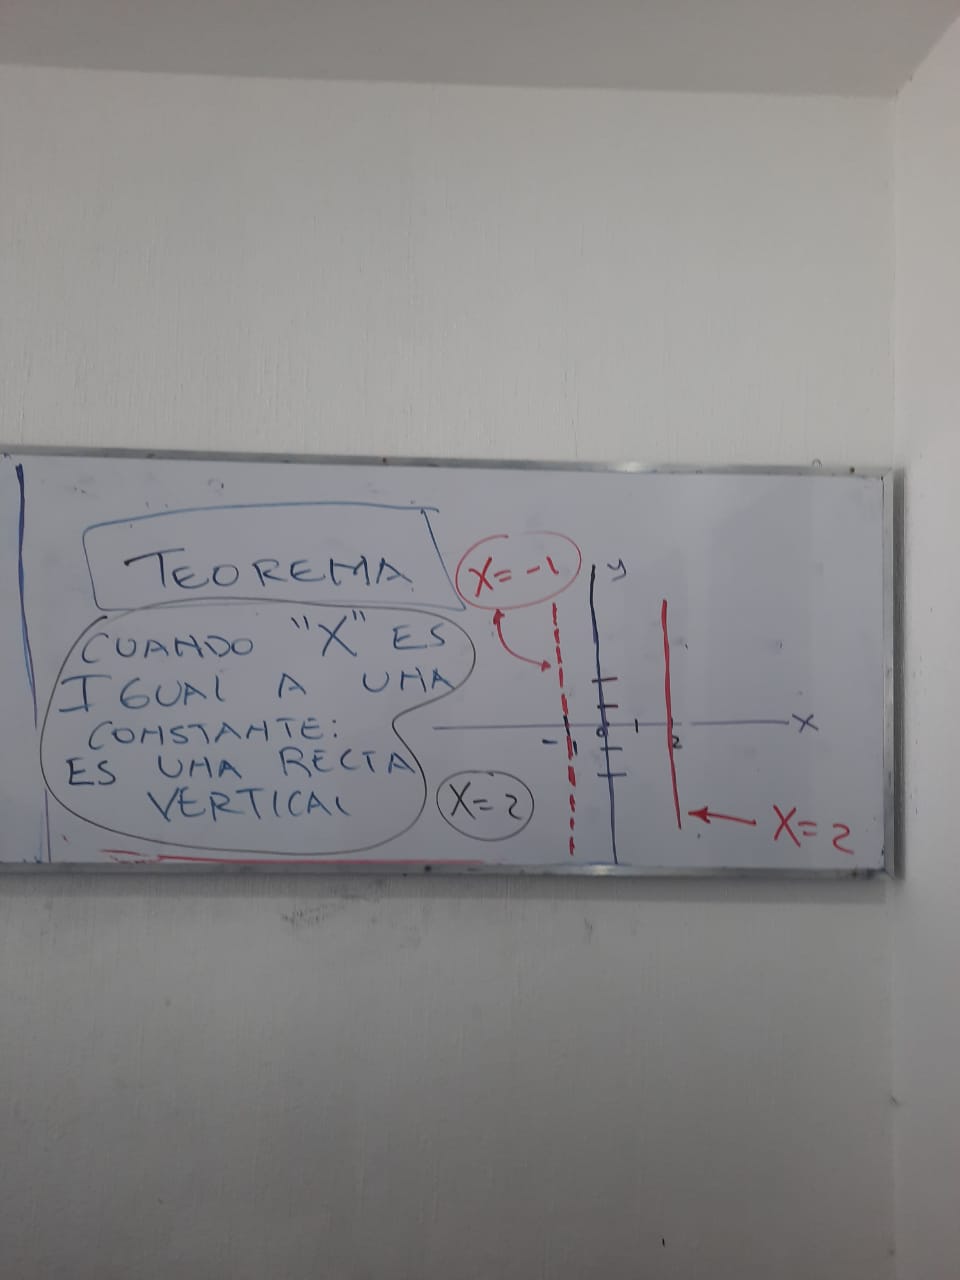 TEOREMA
CUANDO "X" ES
IGUAL A UNA
CONSTANTE:
ES UNA RECTA
VERTICAL
X=2
X=-1
y
X
-1
0
1
2
X=2